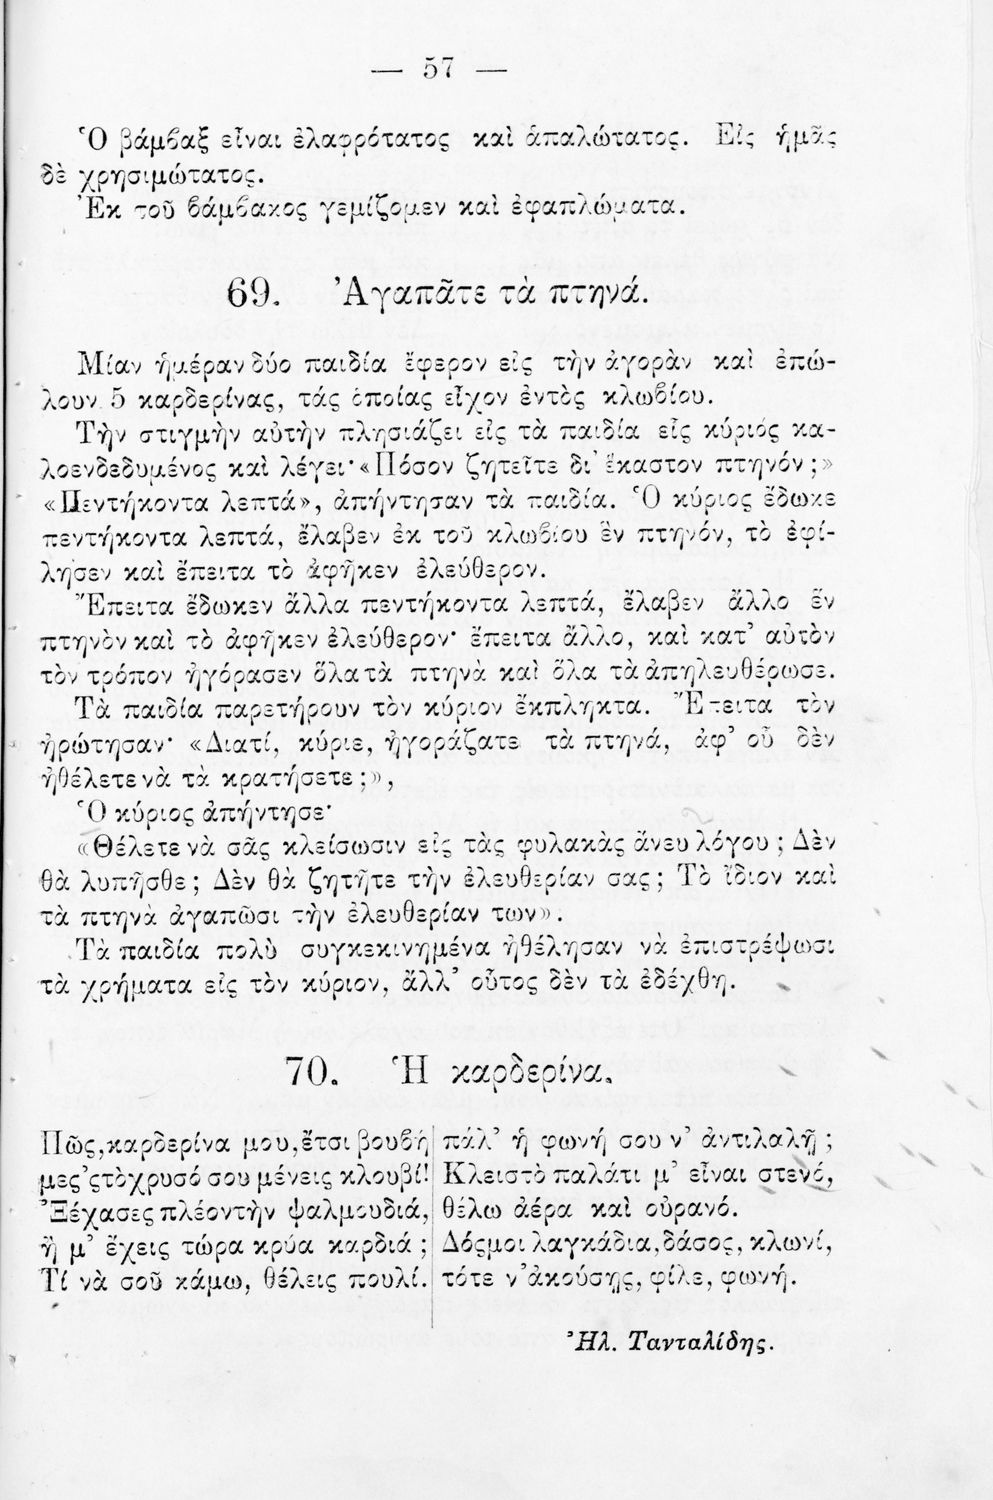 — 57 —
Ὁ βάμβαξ εἶναι ἐλαφρότατος καὶ ἁπαλώτατος. Εἰς ἡμᾶς
δὲ χρησιμώτατος.
Ἐκ τοῦ βάμβακος γεμίζομεν καὶ ἐφαπλώματα.
69. Ἀγαπᾶτε τὰ πτηνά.
Μίαν ἡμέραν δύο παιδία ἔφερον εἰς τὴν ἀγορὰν καὶ ἐπώ-
λουν 5 καρδερίνας, τάς ὁποίας εἶχον ἐντὸς κλωβίου.
Τὴν στιγμὴν αὐτὴν πλησιάζει εἰς τὰ παιδία εἷς κύριός κα-
λοενδεδυμένος καὶ λέγει· «Πόσον ζητεῖτε δι᾿ ἕκαστον πτηνόν ;»
«Πεντήκοντα λεπτά», ἀπήντησαν τὰ παιδία. Ὁ κύριος ἔδωκε
πεντήκοντα λεπτά, ἔλαβεν ἐκ τοῦ κλωβίου ἓν πτηνόν, τὸ ἐφί-
λησεν καὶ ἔπειτα τὸ ἀφῆκεν ἐλεύθερον.
Ἔπειτα ἔδωκεν ἄλλα πεντήκοντα λεπτά, ἔλαβεν ἄλλο ἓν
πτηνὸν καὶ τὸ ἀφῆκεν ἐλεύθερον· ἔπειτα ἄλλο, καὶ κατ᾿ αὐτὸν
τὸν τρόπον ἠγόρασεν ὅλα τὰ πτηνὰ καὶ ὅλα τὰ ἀπηλευθέρωσε.
Τὰ παιδία παρετήρουν τὸν κύριον ἔκπληκτα. Ἔπειτα τὸν
ἠρώτησαν· «Διατί, κύριε, ἠγοράζατε τὰ πτηνά, ἀφ᾿ οὗ δὲν
ἠθέλετε νὰ τὰ κρατήσετε ;»,
Ὁ κύριος ἀπήντησε·
«Θέλετε νὰ σᾶς κλείσωσιν εἰς τὰς φυλακὰς ἄνευ λόγου ; Δὲν
θὰ λυπῆσθε ; Δὲν θὰ ζητῆτε τὴν ἐλευθερίαν σας ; Τὸ ἴδιον καὶ
τὰ πτηνὰ ἀγαπῶσι τὴν ἐλευθερίαν των».
Τὰ παιδία πολὺ συγκεκινημένα ἠθέλησαν νὰ ἐπιστρέψωσι
τὰ χρήματα εἰς τὸν κύριον, ἄλλ᾿ οὗτος δὲν τὰ ἐδέχθη.
70. Ἡ καρδερίνα.
Πῶς, καρδερίνα μου, ἔτσι βουβή
μες ᾿ςτὸ χρυσό σου μένεις κλουβί!
Ἐξέχασες πλέον τὴν ψαλμουδιά,
ἢ μ᾿ ἔχεις τώρα κρύα καρδιά ;
Τί νὰ σοῦ κάμω, θέλεις πουλί.
πάλ᾿ ἡ φωνή σου ν᾿ ἀντιλαλῇ ;
Κλειστὸ παλάτι μ᾿ εἶναι στενό,
θέλω ἀέρα καὶ οὐρανό.
Δός μοι λαγκάδια, δάσος, κλωνί,
τότε ν᾿ ἀκούσῃς, φίλε, φωνή.
Ἠλ. Τανταλίδης.